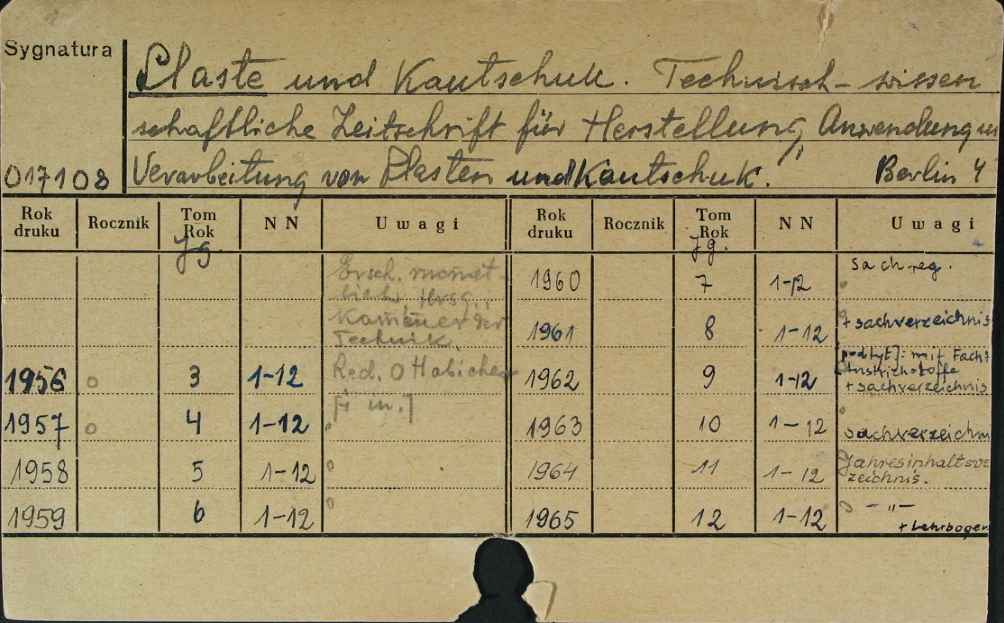 Sygnatura
Plaste und Kautschuk. Technisch-wissen
schaftliche Zeitschrift für Herstellung, Anwendung u
017108 Verarbeitung von Plasten und Kautschuk." Berlin 4
Rok druku Rocznik Tom Rok N N Uwagi Rok druku Rocznik Tom Rok N N Uwagi
Jg. Jg.
Ersch. monat-
lich. Hrsg.:
Kammer der
Technik.
Red. O Habicher
[i in.]
1956 3 1-12
1957 4 1-12
1958 5 1-12
1959 6 1-12
1960 7 1-12 Sachreg.
1961 8 1-12 + sachverzeichnis
1962 9 1-12 [podtyt]: mit Facht
Anstrichstoffe
+ sachverzeichnis
1963 10 1-12 sachverzeichn
1964 11 1-12 Jahresinhaltsve
zeichnis.
1965 12 1-12 - " -
+ Lehrbogen